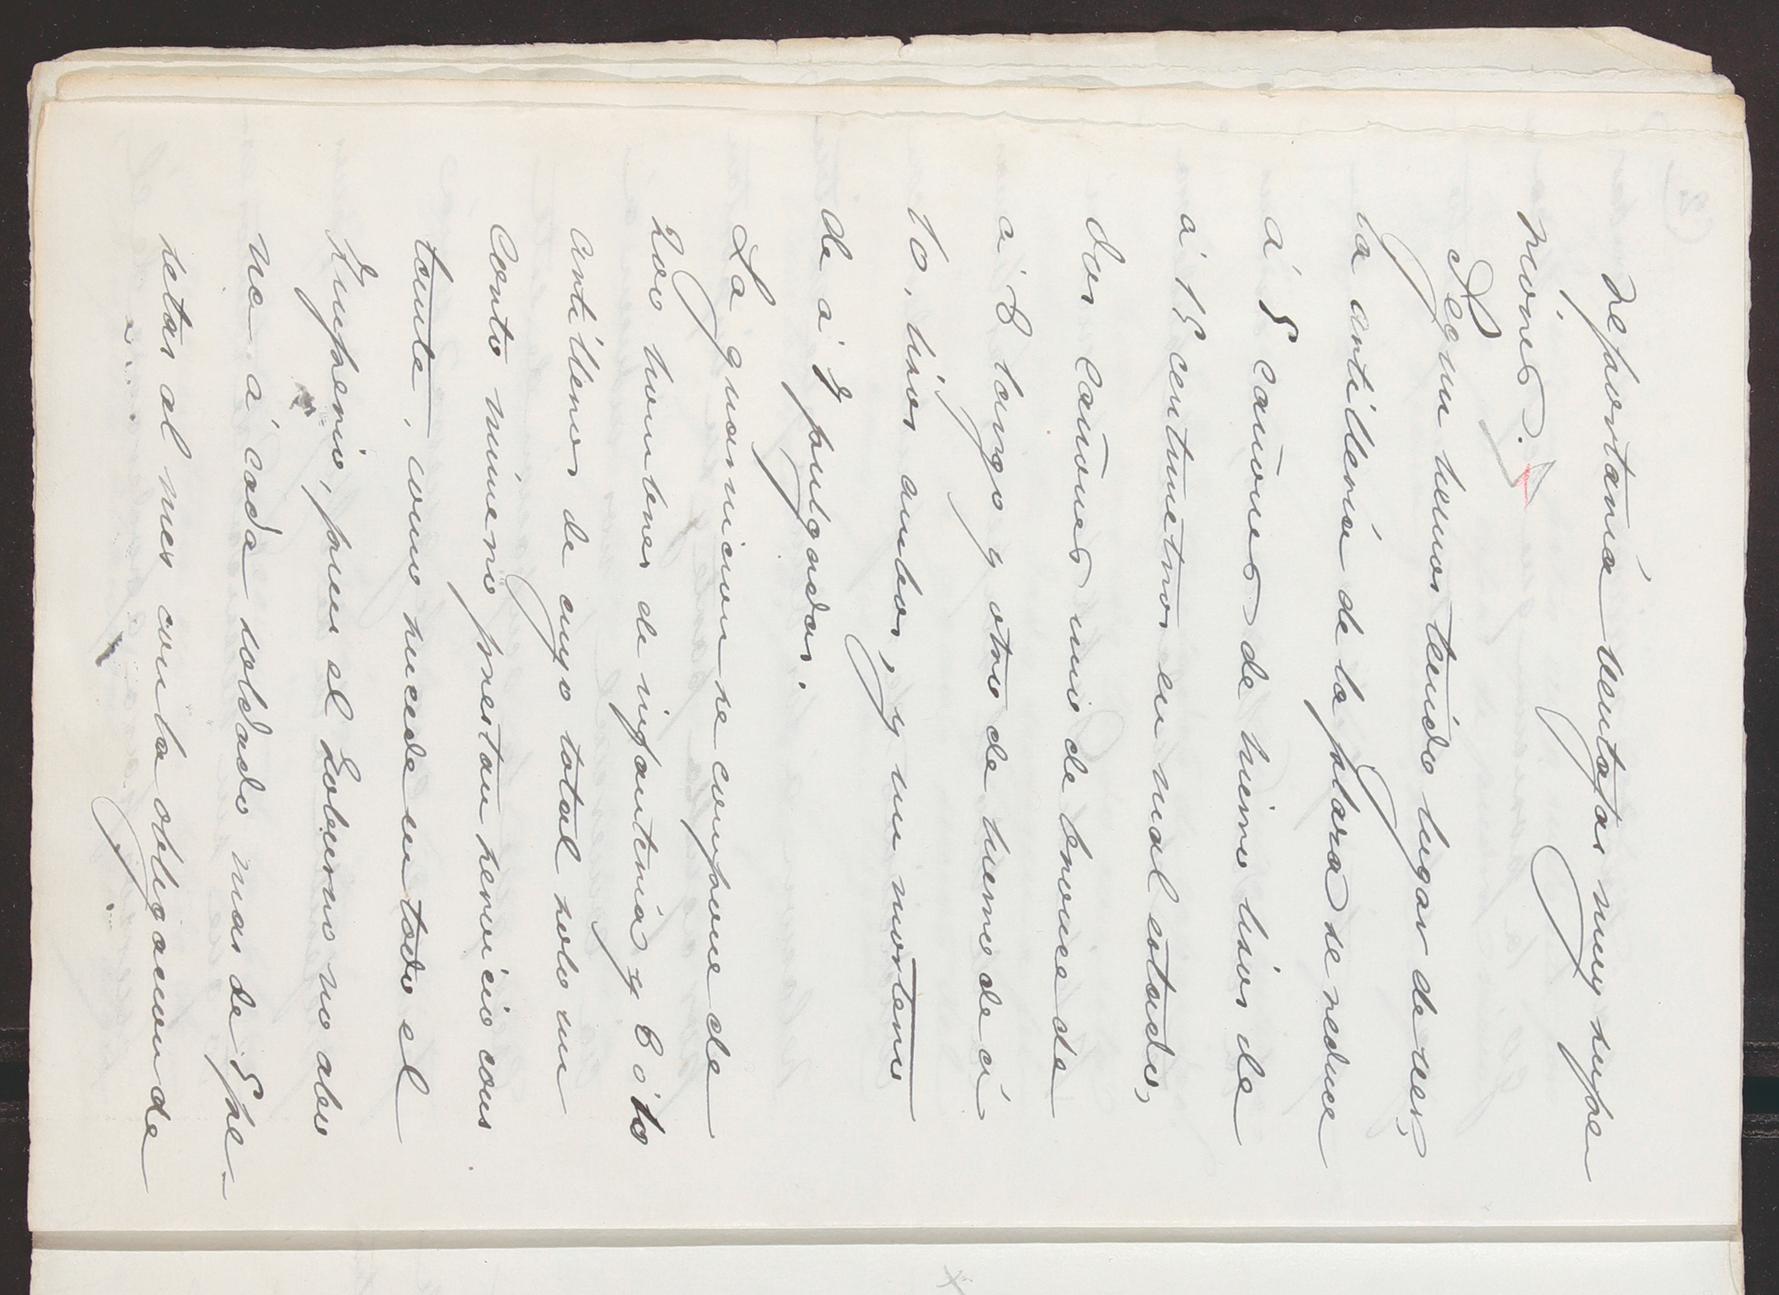 reportaría ventajas muy supe
riores.
Segun hemos tenido lugar de ver,
la artillería de la plaza se reduce
á 5 cañones de hierro lisos de
á 15 centimetros en mal estado,
dos cañones uno de bronce de
á 8 largo y otro de hierro de á
10, lisos ambos, y un mortero
de á 7 pulgadas.
La guarnicion se compone de
200 hombres de infantería y 8 ó 10
artilleros de cuyo total solo un
corto número prestan servicio cons
tante, como sucede en todo el
Imperio, pues el Gobierno no abo
na á cada soldado mas de 5 pe-
setas al mes con la obligacion de